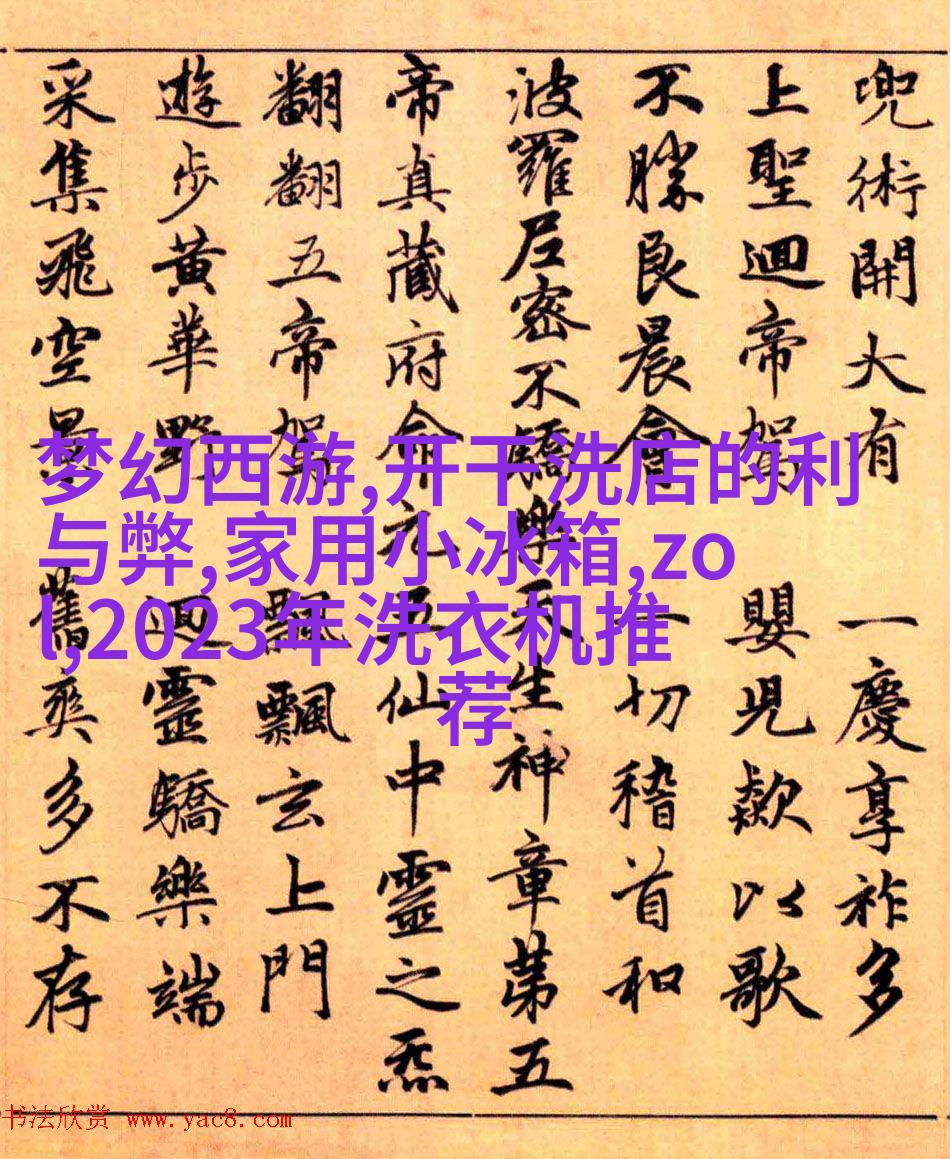 兜術開大有 一慶享祚多
上聖迴帝駕 嬰児歎以歌
不勝良晨會 一切稽首和
波羅尼密不驕樂天生神章第五
帝真藏府命元五仙中靈之炁
翻翻五帝駕 飄飄玄上門
遊步黃華野 迴靈驕樂端
采集飛空景 舊爽多不存
梦幻西游,开干洗店的利
与弊,家用小冰箱,zo
l,2023年洗衣机推
荐
书法欣赏 www.yac8.com